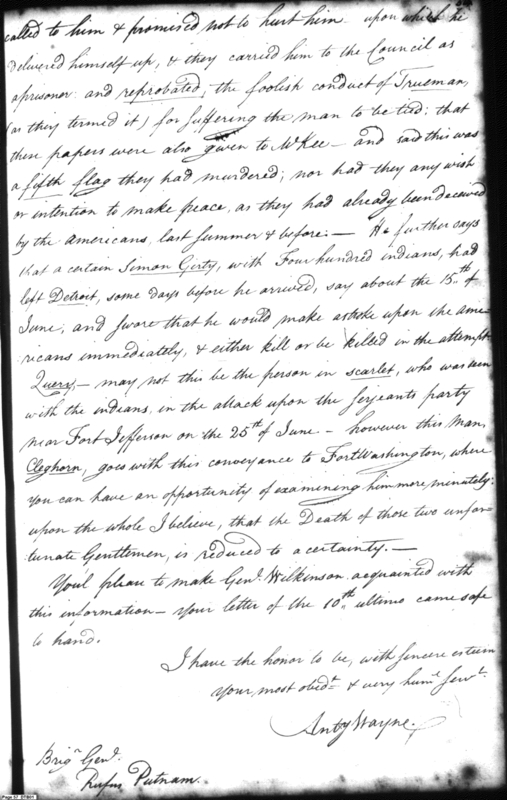 called to him & promised not to hurt him upon which he
delivered himself up, & they carried him to the Council as
a prisoner and reprobated, the foolish conduct of Trueman,
(as they termed it) for suffering the man to be tied; that
these papers were also given to McKee — and said this was
a fifth flag they had murdered; nor had they any wish
or intention to make peace, as they had already been deceived
by the Americans, last Summer & before. — He further says
that a certain Simon Girty, with Four hundred indians, had
left Detroit, some days before he arrived, say about the 15th of
June, and swore that he would make a stroke upon the ame-
ricans immediately, & either kill or be killed in the attempt
Query, — may not this be the person in scarlet, who was seen
with the indians, in the attack upon the Serjeants party
near Fort Jefferson on the 25th of June — however this Man,
Cleghorn, goes with this conveyance to Fort Washington, where
you can have an opportunity of examining him more minutely:
upon the whole I believe, that the Death of those two unfor-
tunate Gentlemen, is reduced to a certainty. —
You'l please to make Genl. Wilkinson acquainted with
this information — your letter of the 10th ultimo came safe
to hand.
I have the honor to be, with sincere esteem
Your, most obedt. & very huml. Servt.
Anty Wayne.
Brigr. Genl.
Rufus Putnam.